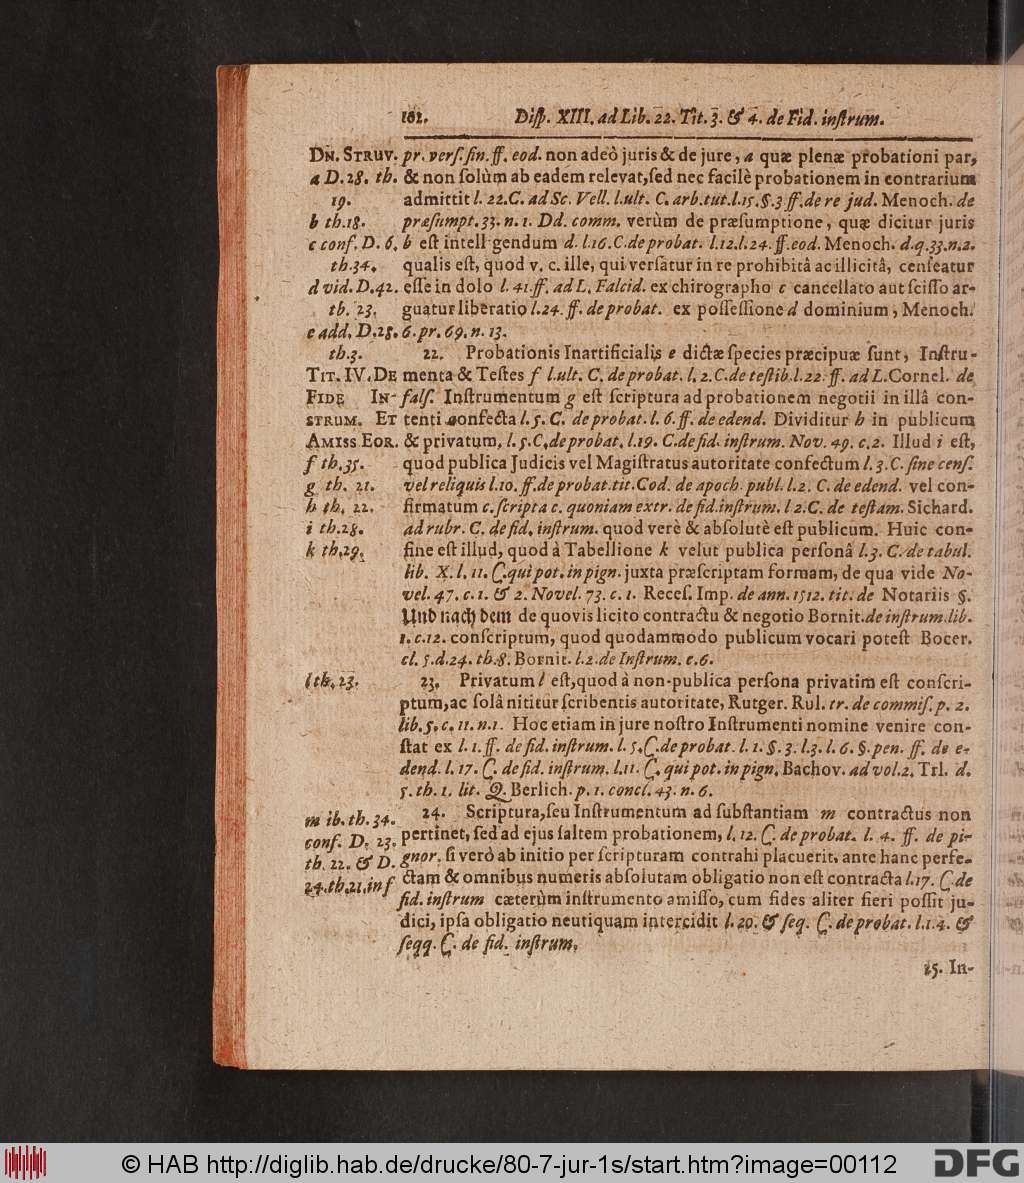 102. Disp. XIII. ad Lib. 22. Tit. 3. & 4. de Fid. instrum.
DN. STRUV. pr. vers. fin. ff. eod. non adeò juris & de jure, a quæ plenæ probationi par,
a D. 28. th. & non solùm ab eadem relevat, sed nec facilè probationem in contrarium
19. admittit l. 22. C. ad Sc. Vell. l. ult. C. arb. tut. l. 15. §. 3 ff. de re jud. Menoch. de
b th. 18. præsumpt. 33. n. 1. Dd. comm. verùm de præsumptione, quæ dicitur juris
c conf. D. 6. b est intell gendum d. l. 16. C. de probat. l. 12. l. 24. ff. eod. Menoch. d. q. 33. n. 2.
th. 34. qualis est, quod v. c. ille, qui versatur in re prohibitâ ac illicitâ, censeatur
d vid. D. 42. esse in dolo l. 41. ff. ad L. Falcid. ex chirographo c cancellato aut scisso ar-
th. 23. guatur liberatio l. 24. ff. de probat. ex possessione d dominium, Menoch.
e add. D. 28. 6. pr. 69. n. 13.
th. 3. 22. Probationis Inartificialis e dictæ species præcipuæ sunt, Instru-
TIT. IV. DE menta & Testes f l. ult. C. de probat. l. 2. C. de testib. l. 22. ff. ad L. Cornel. de
FIDE IN- fals. Instrumentum g est scriptura ad probationem negotii in illâ con-
STRUM. ET tenti confecta l. 5. C. de probat. l. 6. ff. de edend. Dividitur h in publicum
AMISS EOR. & privatum, l. 5. C, de probat. l. 19. C. de fid. instrum. Nov. 49. c. 2. Illud i est,
f th. 35. quod publica Judicis vel Magistratus autoritate confectum l. 3. C. sine cens.
g th. 21. vel reliquis l. 10. ff. de probat. tit. Cod. de apoch. publ. l. 2. C. de edend. vel con-
h th. 22. firmatum c. scripta c. quoniam extr. de fid. instrum. l 2. C. de testam. Sichard.
i th. 28. ad rubr. C. de fid. instrum. quod verè & absolutè est publicum. Huic con-
k th. 29. fine est illud, quod à Tabellione k velut publica personâ l. 3. C. de tabul.
lib. X. l. 11. C. qui pot. in pign. juxta præscriptam formam, de qua vide No-
vel. 47. c. 1. & 2. Novel. 73. c. 1. Reces. Imp. de ann. 1512. tit. de Notariis §.
Und nach dem de quovis licito contractu & negotio Bornit. de instrum. lib.
1. c. 12. conscriptum, quod quodammodo publicum vocari potest Bocer.
cl. 5. d. 24. th. 8. Bornit. l. 2. de Instrum. c. 6.
l th. 23. 23. Privatum l est, quod à non-publica persona privatim est conscri-
ptum, ac solâ nititur scribentis autoritate, Rutger. Rul. tr. de commis. p. 2.
lib. 5. c. 11. n. 1. Hoc etiam in jure nostro Instrumenti nomine venire con-
stat ex l. 1. ff. de fid. instrum. l. 5. C. de probat. l. 1. §. 3. l. 3. l. 6. §. pen. ff. de e-
dend. l. 17. C. de fid. instrum. l. 11. C. qui pot. in pign. Bachov. ad vol. 2. Trl. d.
5. th. 1. lit. Q. Berlich. p. 1. concl. 43. n. 6.
m ib. th. 34. 24. Scriptura, seu Instrumentum ad substantiam m contractus non
conf. D. 23. pertinet, sed ad ejus saltem probationem, l. 12. C. de probat. l. 4. ff. de pi-
th. 22. & D. gnor. si verò ab initio per scripturam contrahi placuerit, ante hanc perfe-
24. th. 21. inf ctam & omnibus numeris absolutam obligatio non est contracta l. 17. C. de
fid. instrum cæterùm instrumento amisso, cum fides aliter fieri possit ju-
dici, ipsa obligatio neutiquam intercidit l. 20. & seq. C. de probat. l. 1. 4. &
seqq. C. de fid. instrum.
25. In-
© HAB http://diglib.hab.de/drucke/80-7-jur-1s/start.htm?image=00112
DFG